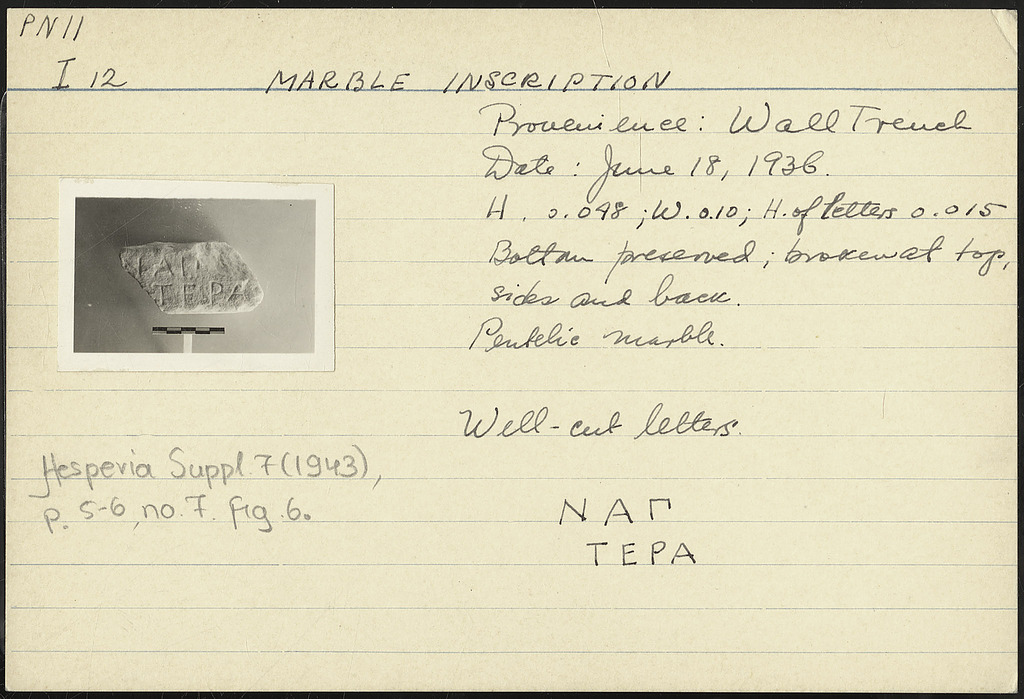 PN 11
I 12 MARBLE INSCRIPTION
Provenience: Wall Trench
Date: June 18, 1936.
H. 0.048; W. 0.10; H. of letters 0.015
Bottom preserved; broken at top,
sides and back.
Pentelic marble.
Well-cut letters.
Hesperia Suppl. 7 (1943),
p. 5-6, no. 7. fig. 6.
ΝΑΠ
ΤΕΡΑ